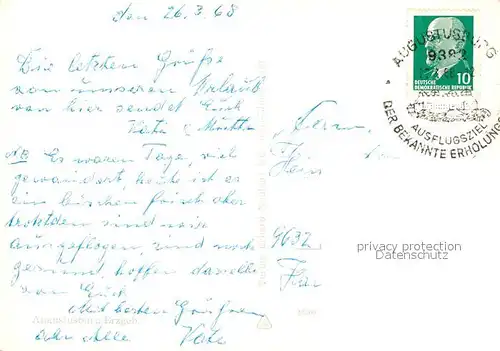 den 26.3.68
Die letzten Grüße
von unserem Urlaub
von hier sendet Euch
Vati u. Mutti
NB Es waren Tage, viel
gewandert, heute ist es
ein bischen frisch aber
trotzdem sind wir
ausgeflogen, sind noch
gesund, hoffen dasselbe
von Euch
Mit besten Grüßen
an Alle Vati
Herrn
Hein
9632
Augustusburg / Erzgeb.
AUGUSTUSBURG
9382
DER BEKANNTE ERHOLUNGS
AUSFLUGSZIEL
10
DEUTSCHE
DEMOKRATISCHE REPUBLIK
privacy protection
Datenschutz